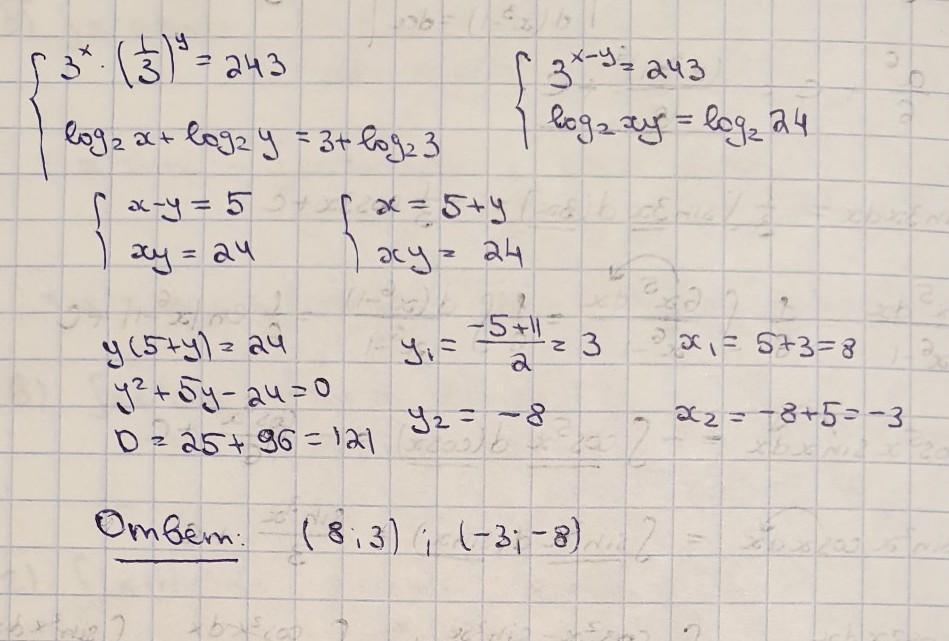 3^x · (1/3)^y = 243
log₂ x + log₂ y = 3 + log₂ 3
3^(x-y) = 243
log₂ xy = log₂ 24
x-y = 5
xy = 24
x = 5+y
xy = 24
y(5+y) = 24
y² + 5y - 24 = 0
D = 25 + 96 = 121
y₁ = (-5+11)/2 = 3
x₁ = 5+3 = 8
y₂ = -8
x₂ = -8+5 = -3
Ответ: (8;3); (-3;-8)